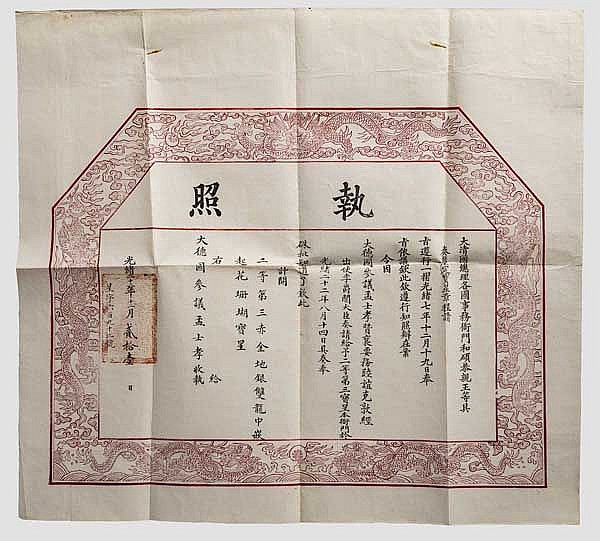 執照
大清國總理各國事務衙門和碩恭親王等具
奏星章程請
旨遵行一摺光緒七年十二月十九日奉
旨依議欽此欽遵行知照辦在案
今因
大德國參議孟士孝贊襄要務睦誼克敦經
出使大臣奏請給予二等第三寶星本衙門於
光緒二十二年八月十四日具奏奉
硃批知道了欽此
計開
二等第三赤金地銀雙龍中嵌
起花珊瑚寶星
右 給
大德國參議孟士孝收執
光緒 年 月 貳拾壹 日